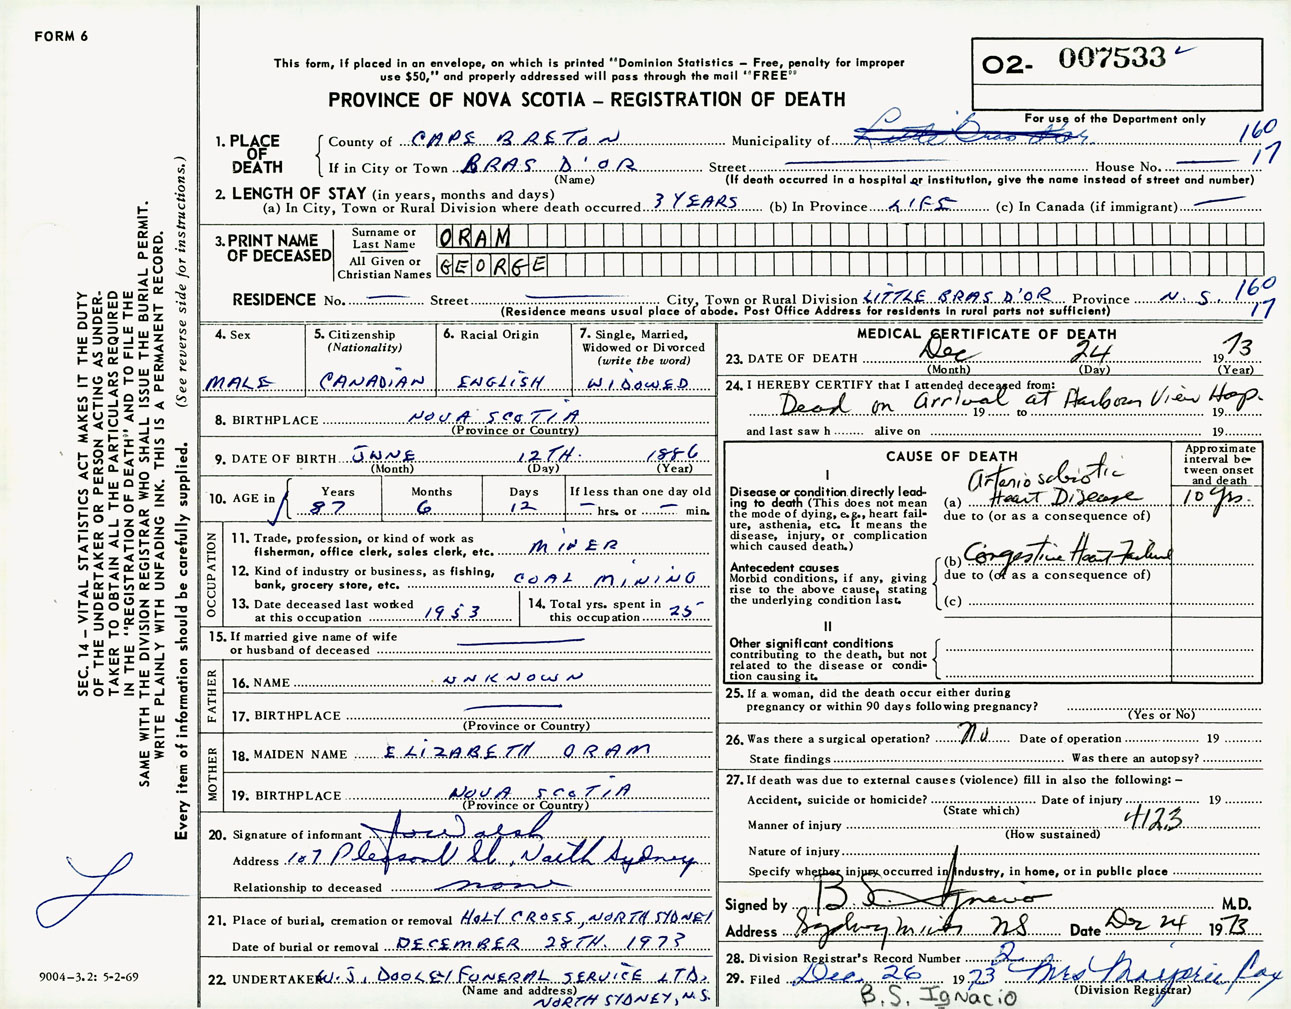 FORM 6
This form, if placed in an envelope, on which is printed "Dominion Statistics – Free, penalty for improper
use $50," and properly addressed will pass through the mail "FREE"
O2- 007533
For use of the Department only
PROVINCE OF NOVA SCOTIA – REGISTRATION OF DEATH
1. PLACE OF DEATH
County of CAPE BRETON Municipality of Little Bras d'Or 160
If in City or Town BRAS D'OR Street — House No. — 17
(Name) (If death occurred in a hospital or institution, give the name instead of street and number)
2. LENGTH OF STAY (in years, months and days)
(a) In City, Town or Rural Division where death occurred 3 YEARS (b) In Province LIFE (c) In Canada (if immigrant) —
3. PRINT NAME OF DECEASED
Surname or Last Name ORAM
All Given or Christian Names GEORGE
RESIDENCE No. — Street — City, Town or Rural Division LITTLE BRAS D'OR Province N.S. 160
(Residence means usual place of abode. Post Office Address for residents in rural parts not sufficient) 17
4. Sex
MALE
5. Citizenship
(Nationality)
CANADIAN
6. Racial Origin
ENGLISH
7. Single, Married,
Widowed or Divorced
(write the word)
WIDOWED
8. BIRTHPLACE NOVA SCOTIA
(Province or Country)
9. DATE OF BIRTH JUNE 12TH. 1886
(Month) (Day) (Year)
10. AGE in
Years Months Days If less than one day old
87 6 12 — hrs. or — min.
OCCUPATION
11. Trade, profession, or kind of work as
fisherman, office clerk, sales clerk, etc. MINER
12. Kind of industry or business, as fishing,
bank, grocery store, etc. COAL MINING
13. Date deceased last worked
at this occupation 1953
14. Total yrs. spent in
this occupation 25
15. If married give name of wife
or husband of deceased —
FATHER
16. NAME UNKNOWN
17. BIRTHPLACE —
(Province or Country)
MOTHER
18. MAIDEN NAME ELIZABETH ORAM
19. BIRTHPLACE NOVA SCOTIA
(Province or Country)
20. Signature of informant Joe Walsh
Address 107 Pleasant St., North Sydney
Relationship to deceased none
21. Place of burial, cremation or removal HOLY CROSS, NORTH SYDNEY
Date of burial or removal DECEMBER 28TH. 1973
22. UNDERTAKER W.J. DOOLEY FUNERAL SERVICE LTD.
(Name and address) NORTH SYDNEY, N.S.
MEDICAL CERTIFICATE OF DEATH
23. DATE OF DEATH Dec 24 1973
(Month) (Day) (Year)
24. I HEREBY CERTIFY that I attended deceased from:
Dead on Arrival at Harbour View Hosp.
19 to 19
and last saw h alive on 19
CAUSE OF DEATH
Approximate
interval be-
tween onset
and death
I
Disease or condition directly lead-
ing to death (This does not mean
the mode of dying, e.g., heart fail-
ure, asthenia, etc. It means the
disease, injury, or complication
which caused death.)
(a) Heart Disease 10 yrs.
due to (or as a consequence of)
Antecedent causes
Morbid conditions, if any, giving
rise to the above cause, stating
the underlying condition last.
(b) Congestive Heart Failure
due to (or as a consequence of)
(c)
II
Other significant conditions
contributing to the death, but not
related to the disease or condi-
tion causing it.
25. If a woman, did the death occur either during
pregnancy or within 90 days following pregnancy?
(Yes or No)
26. Was there a surgical operation? No Date of operation 19
State findings Was there an autopsy?
27. If death was due to external causes (violence) fill in also the following: –
Accident, suicide or homicide? Date of injury 19
(State which)
Manner of injury 4123
(How sustained)
Nature of injury
Specify whether injury occurred in industry, in home, or in public place
Signed by B. S. Ignacio M.D.
Address Sydney Mines NS Date Dec 24 1973
28. Division Registrar's Record Number 2
29. Filed Dec. 26 1973 Mrs Marjorie Fox
(Division Registrar)
B.S. IGNACIO
SEC. 14 – VITAL STATISTICS ACT MAKES IT THE DUTY
OF THE UNDERTAKER OR PERSON ACTING AS UNDER-
TAKER TO OBTAIN ALL THE PARTICULARS REQUIRED
IN THE "REGISTRATION OF DEATH" AND TO FILE THE
SAME WITH THE DIVISION REGISTRAR WHO SHALL ISSUE THE BURIAL PERMIT.
WRITE PLAINLY WITH UNFADING INK. THIS IS A PERMANENT RECORD.
Every item of information should be carefully supplied. (See reverse side for instructions.)
9004-3.2: 5-2-69